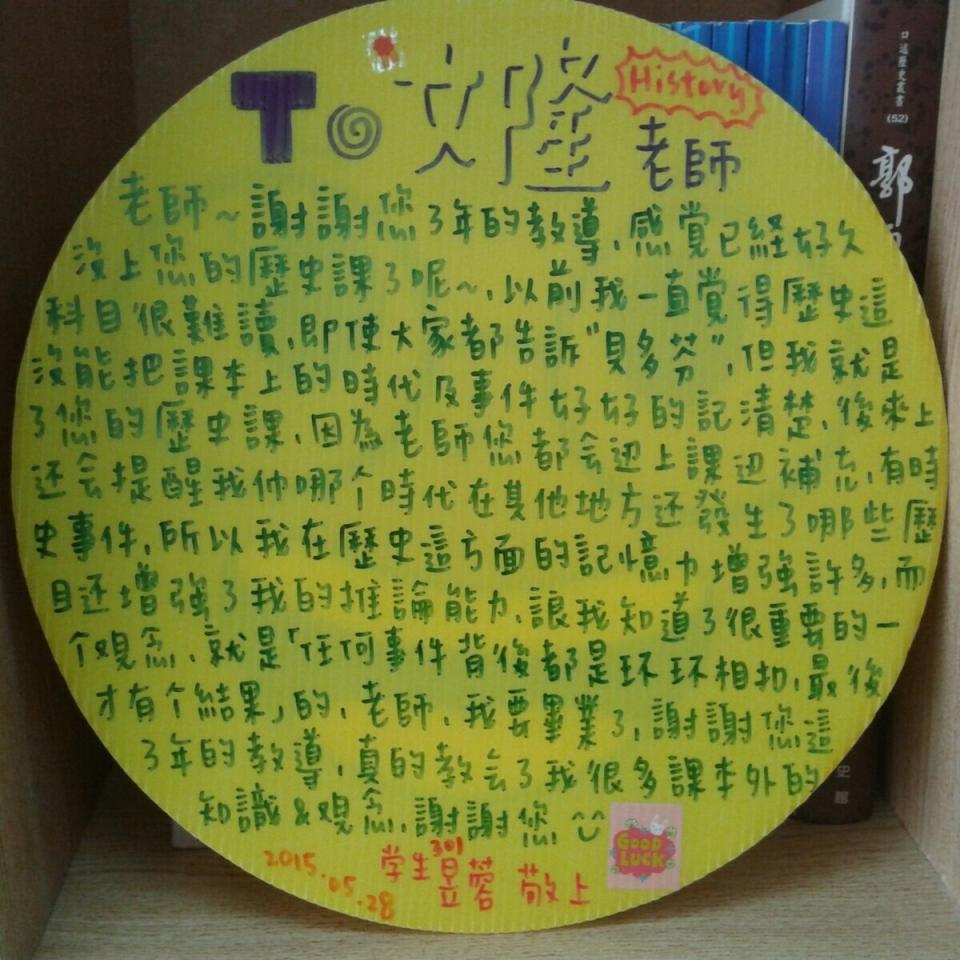 To 文隆 老師
History
老師~謝謝您3年的教導,感覺已經好久
沒上您的歷史課了呢~,以前我一直覺得歷史這
科目很難讀,即使大家都告訴"貝多芬",但我就是
沒能把課本上的時代及事件好好的記清楚,後來上
了您的歷史課,因為老師您都会边上課边補充,有時
还会提醒我们哪个時代在其他地方还發生了哪些歷
史事件,所以我在歷史這方面的記憶力增強許多,而
且还增強了我的推論能力,讓我知道了很重要的一
个观念,就是「任何事件背後都是环环相扣,最後
才有个結果」的,老師,我要畢業了,謝謝您這
3年的教導,真的教会了我很多課本外的
知識&观念,謝謝您
GOOD LUCK
2015.05.28
学生301昱蓉 敬上
口述歷史叢書
(52)
郭
史館